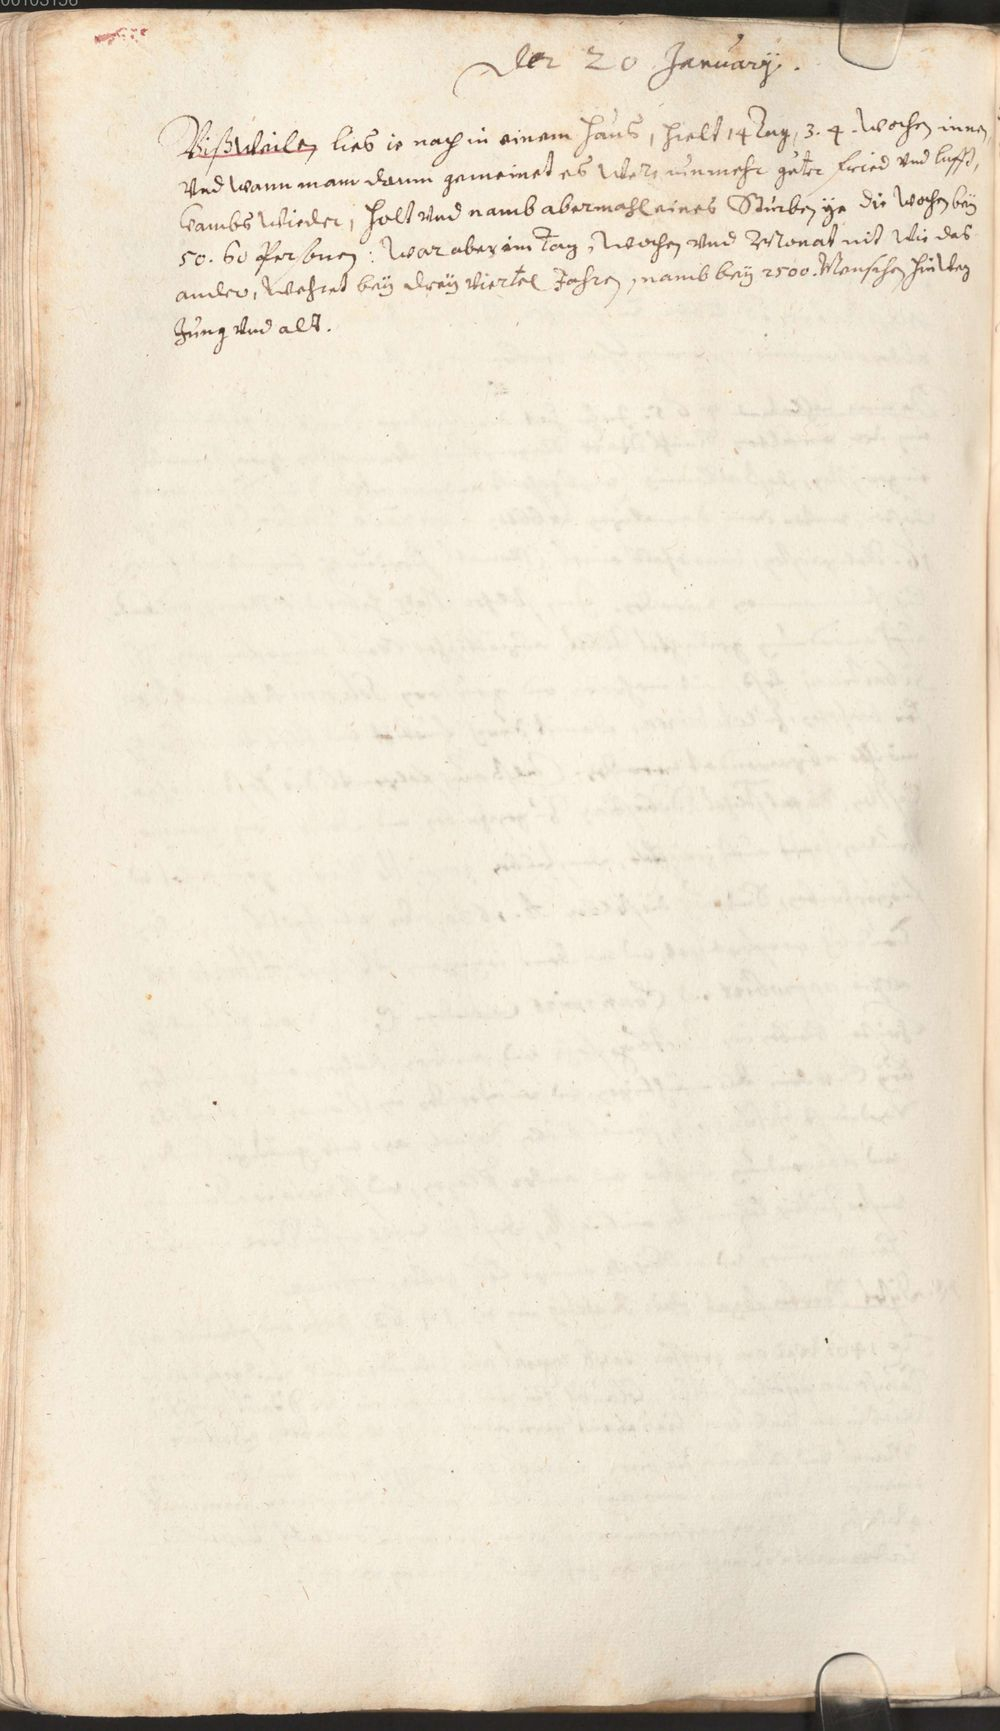 00103156
Der 20 January.
Bißweilen lies ie nach in einem Haus, hielt 14 Tag, 3. 4. wochen innen,
Vnd wann man dann gemeinet es were nunmehr guter fried vnd lufft,
kambs wieder, holt vnd namb abermahl eines Sturben ye die wochen bey
50. 60 Personen: War aber ein Tag, wochen vnd Monat nit wie das
ander, wehret bey drey viertel Jahren, namb bey 2500. Menschen hinweg
Jung vnd alt.